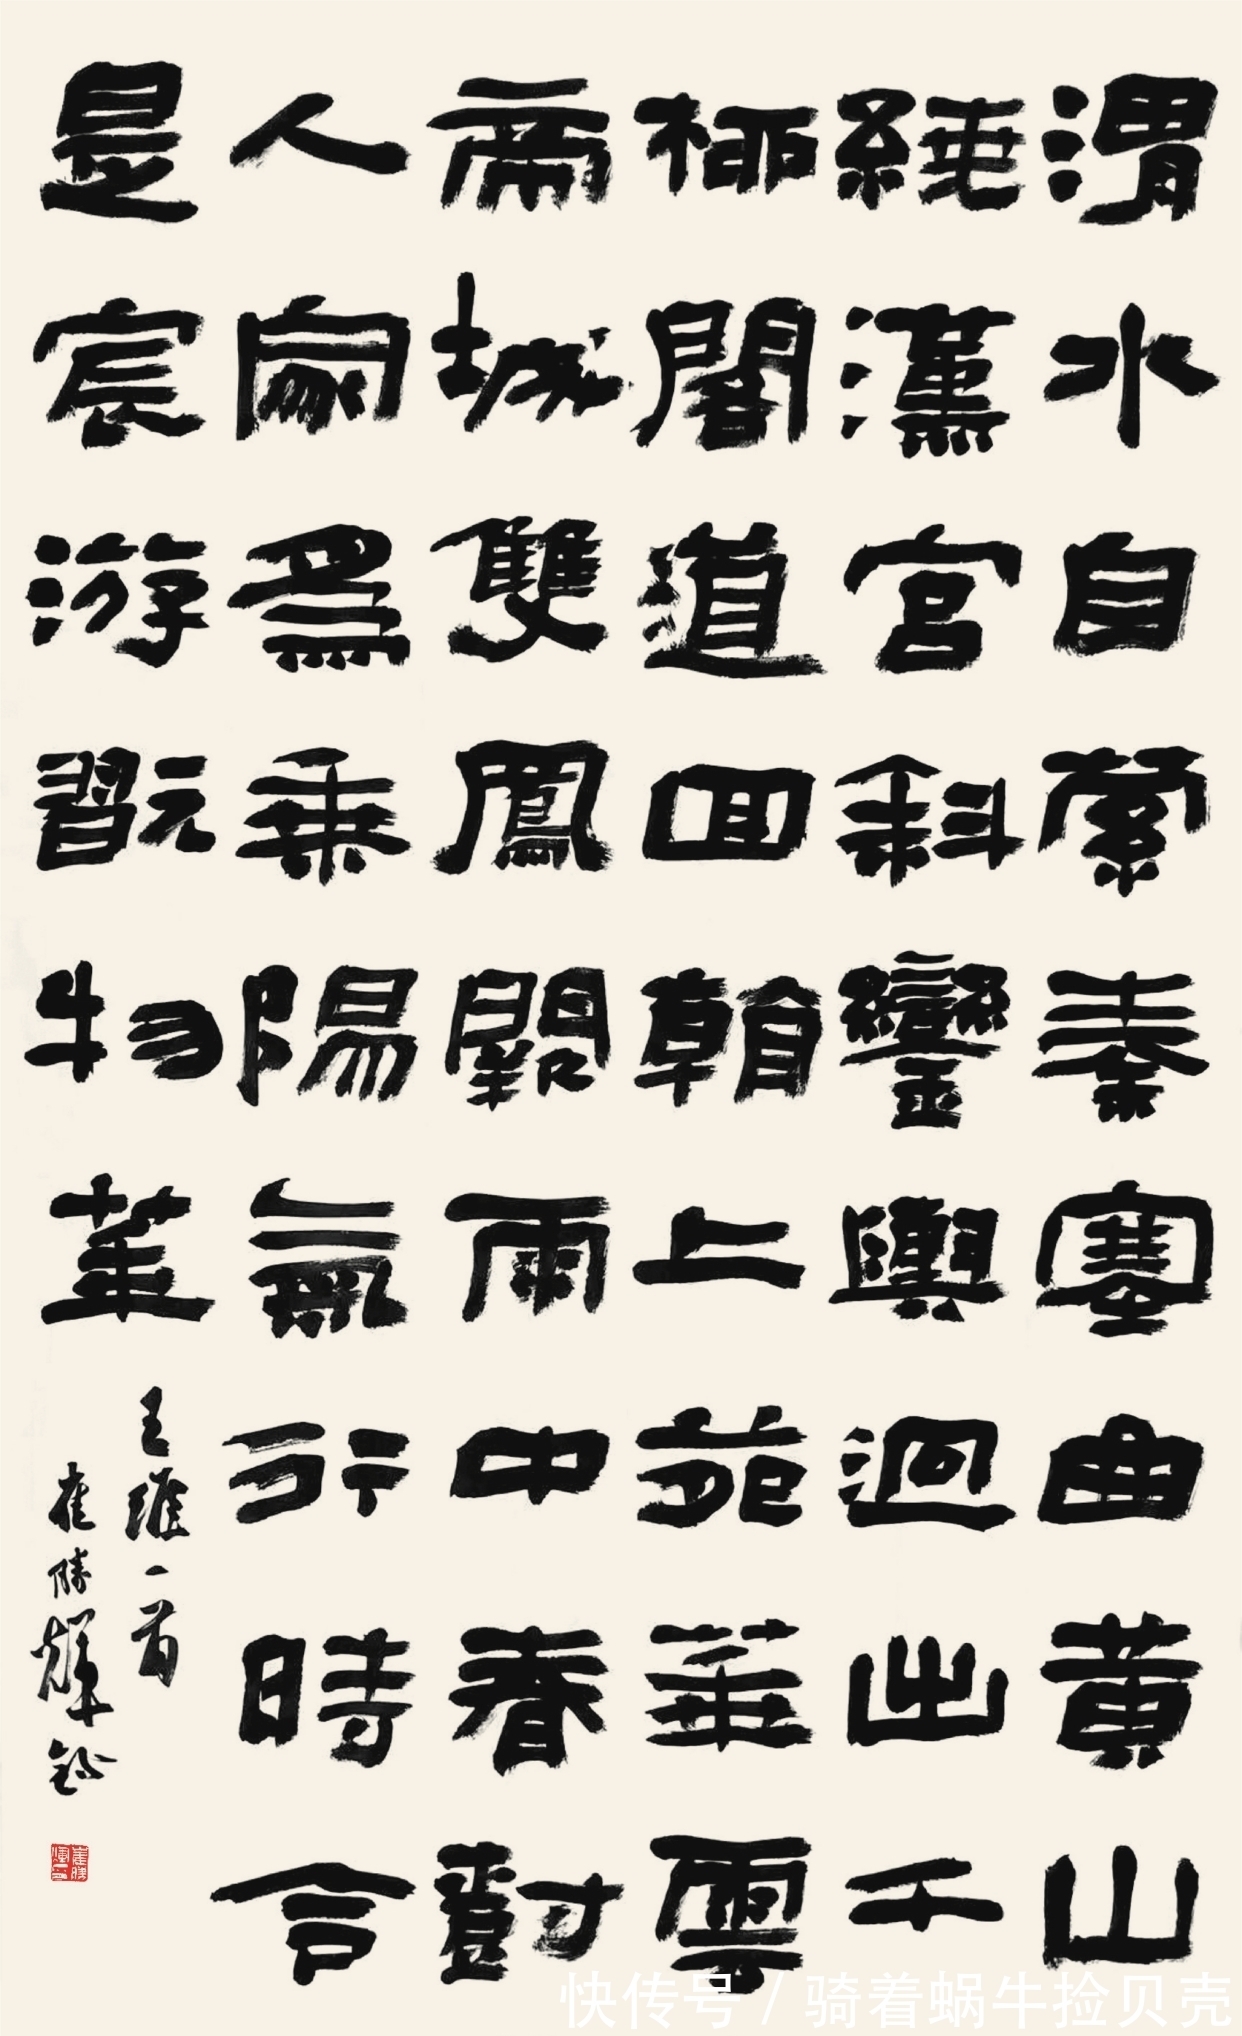 渭水自縈秦塞曲黄山
繞漢宮斜鑾輿迥出千
柳閣道回看上苑華雲
帝城雙鳳闕雨中春尌
人家爲乘陽氣行時令
是宸游翫物華
王維一首
崔勝輝鈔
快传号 / 骑着蜗牛捡贝壳